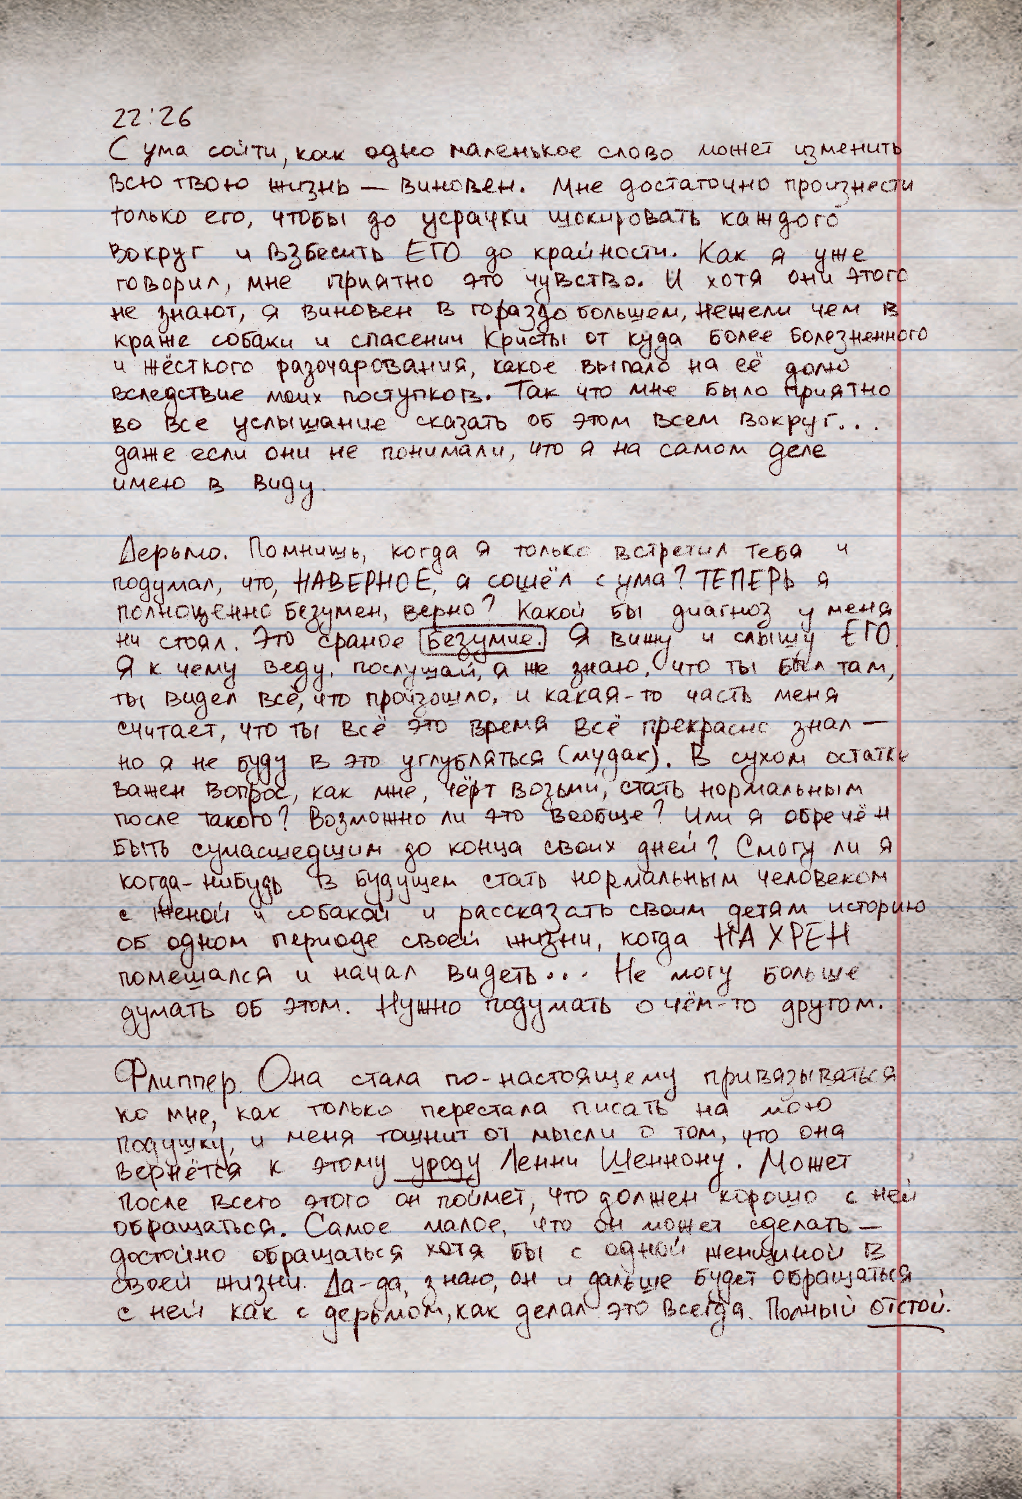 22:26
С ума сойти, как одно маленькое слово может изменить
всю твою жизнь — виновен. Мне достаточно произнести
только его, чтобы до усрачки шокировать каждого
вокруг и взбесить ЕГО до крайности. Как я уже
говорил, мне приятно это чувство. И хотя они этого
не знают, я виновен в гораздо большем, нежели чем в
краже собаки и спасении Кристы от куда более болезненного
и жёсткого разочарования, какое выпало на её долю
вследствие моих поступков. Так что мне было приятно
во все услышание сказать об этом всем вокруг...
даже если они не понимали, что я на самом деле
имею в виду.
Дерьмо. Помнишь, когда я только встретил тебя и
подумал, что, НАВЕРНОЕ, я сошёл с ума? ТЕПЕРЬ я
полноценно безумен, верно? Какой бы диагноз у меня
ни стоял. Это сраное безумие. Я вижу и слышу ЕГО.
Я к чему веду, послушай, я же знаю, что ты был там,
ты видел всё, что произошло, и какая-то часть меня
считает, что ты всё это время всё прекрасно знал —
но я не буду в это углубляться (мудак). В сухом остатке
важен вопрос, как мне, чёрт возьми, стать нормальным
после такого? Возможно ли это вообще? Или я обречён
быть сумасшедшим до конца своих дней? Смогу ли я
когда-нибудь в будущем стать нормальным человеком
с женой и собакой и рассказать своим детям историю
об одном периоде своей жизни, когда НАХРЕН
помешался и начал видеть... Не могу больше
думать об этом. Нужно подумать о чём-то другом.
Флиппер. Она стала по-настоящему привязываться
ко мне, как только перестала писать на мою
подушку, и меня тошнит от мысли о том, что она
вернётся к этому уроду Ленни Шеннону. Может
после всего этого он поймёт, что должен хорошо с ней
обращаться. Самое малое, что он может сделать —
достойно обращаться хотя бы с одной женщиной в
своей жизни. Да-да, знаю, он и дальше будет обращаться
с ней как с дерьмом, как делал это всегда. Полный отстой.